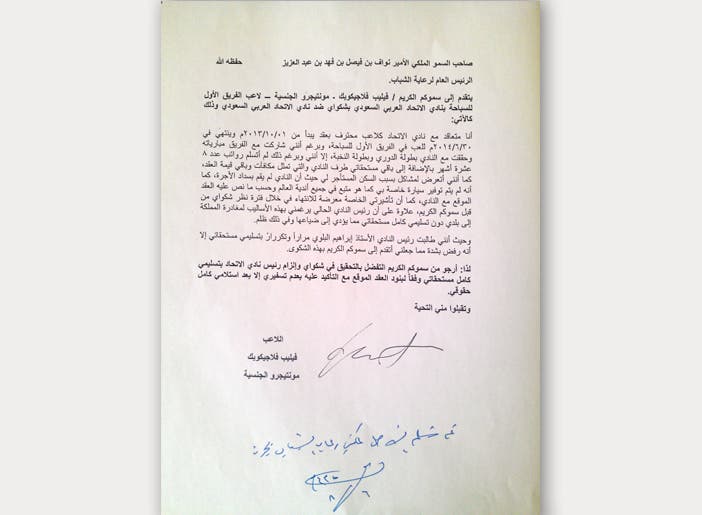 صاحب السمو الملكي الأمير نواف بن فيصل بن فهد بن عبد العزيز حفظه الله
الرئيس العام لرعاية الشباب.
يتقدم إلى سموكم الكريم / فيليب فلاجيكوبك ـ مونتيجرو الجنسية ــ لاعب الفريق الأول
للسباحة بنادي الاتحاد العربي السعودي بشكواي ضد نادي الاتحاد العربي السعودي وذلك
كالآتي:
أنا متعاقد مع نادي الاتحاد كلاعب محترف بعقد يبدأ من ٢٠١٣/١٠/٠١م وينتهي في
٢٠١٤/٦/٣٠م للعب في الفريق الأول للسباحة، وبرغم أنني شاركت مع الفريق مبارياته
وحققت مع النادي بطولة الدوري وبطولة النخبة، إلا أنني وبرغم ذلك لم أتسلم رواتب عدد ٨
عشرة أشهر بالإضافة إلى باقي مستحقاتي طرف النادي والتي تمثل مكافآت وباقي قيمة العقد،
كما أنني أتعرض لمشاكل بسبب السكن المستأجر لي حيث أن النادي لم يقم بسداد الأجرة، كما
أنه لم يقم توفير سيارة خاصة بي كما هو متبع في جميع أندية العالم وحسب ما نص عليه العقد
الموقع مع النادي، كما أن تأشيرتي الخاصة معرضة للانتهاء في خلال فترة نظر شكواي من
قبل سموكم الكريم، علاوة على أن رئيس النادي الحالي يرغمني بهذه الأساليب لمغادرة المملكة
إلى بلدي دون تسليمي كامل مستحقاتي مما يؤدي إلى ضياعها وفي ذلك ظلم.
وحيث أنني طالبت رئيس النادي الأستاذ إبراهيم البلوي مراراً وتكراراً بتسليمي مستحقاتي إلا
أنه رفض بشدة مما جعلني أتقدم إلى سموكم الكريم بهذه الشكوى.
لذا: أرجو من سموكم الكريم التفضل بالتحقيق في شكواي وإلزام رئيس نادي الاتحاد بتسليمي
كامل مستحقاتي وفقاً لبنود العقد الموقع مع التأكيد عليه بعدم تسفيري إلا بعد استلامي كامل
حقوقي.
وتقبلوا مني التحية
اللاعب
فيليب فلاجيكوبك
مونتيجرو الجنسية